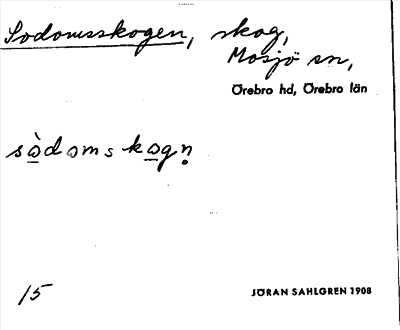 Sodomsskogen, skog,
Mosjö sn,
Örebro hd, Örebro län
sòdomskogn
15
JÖRAN SAHLGREN 1908